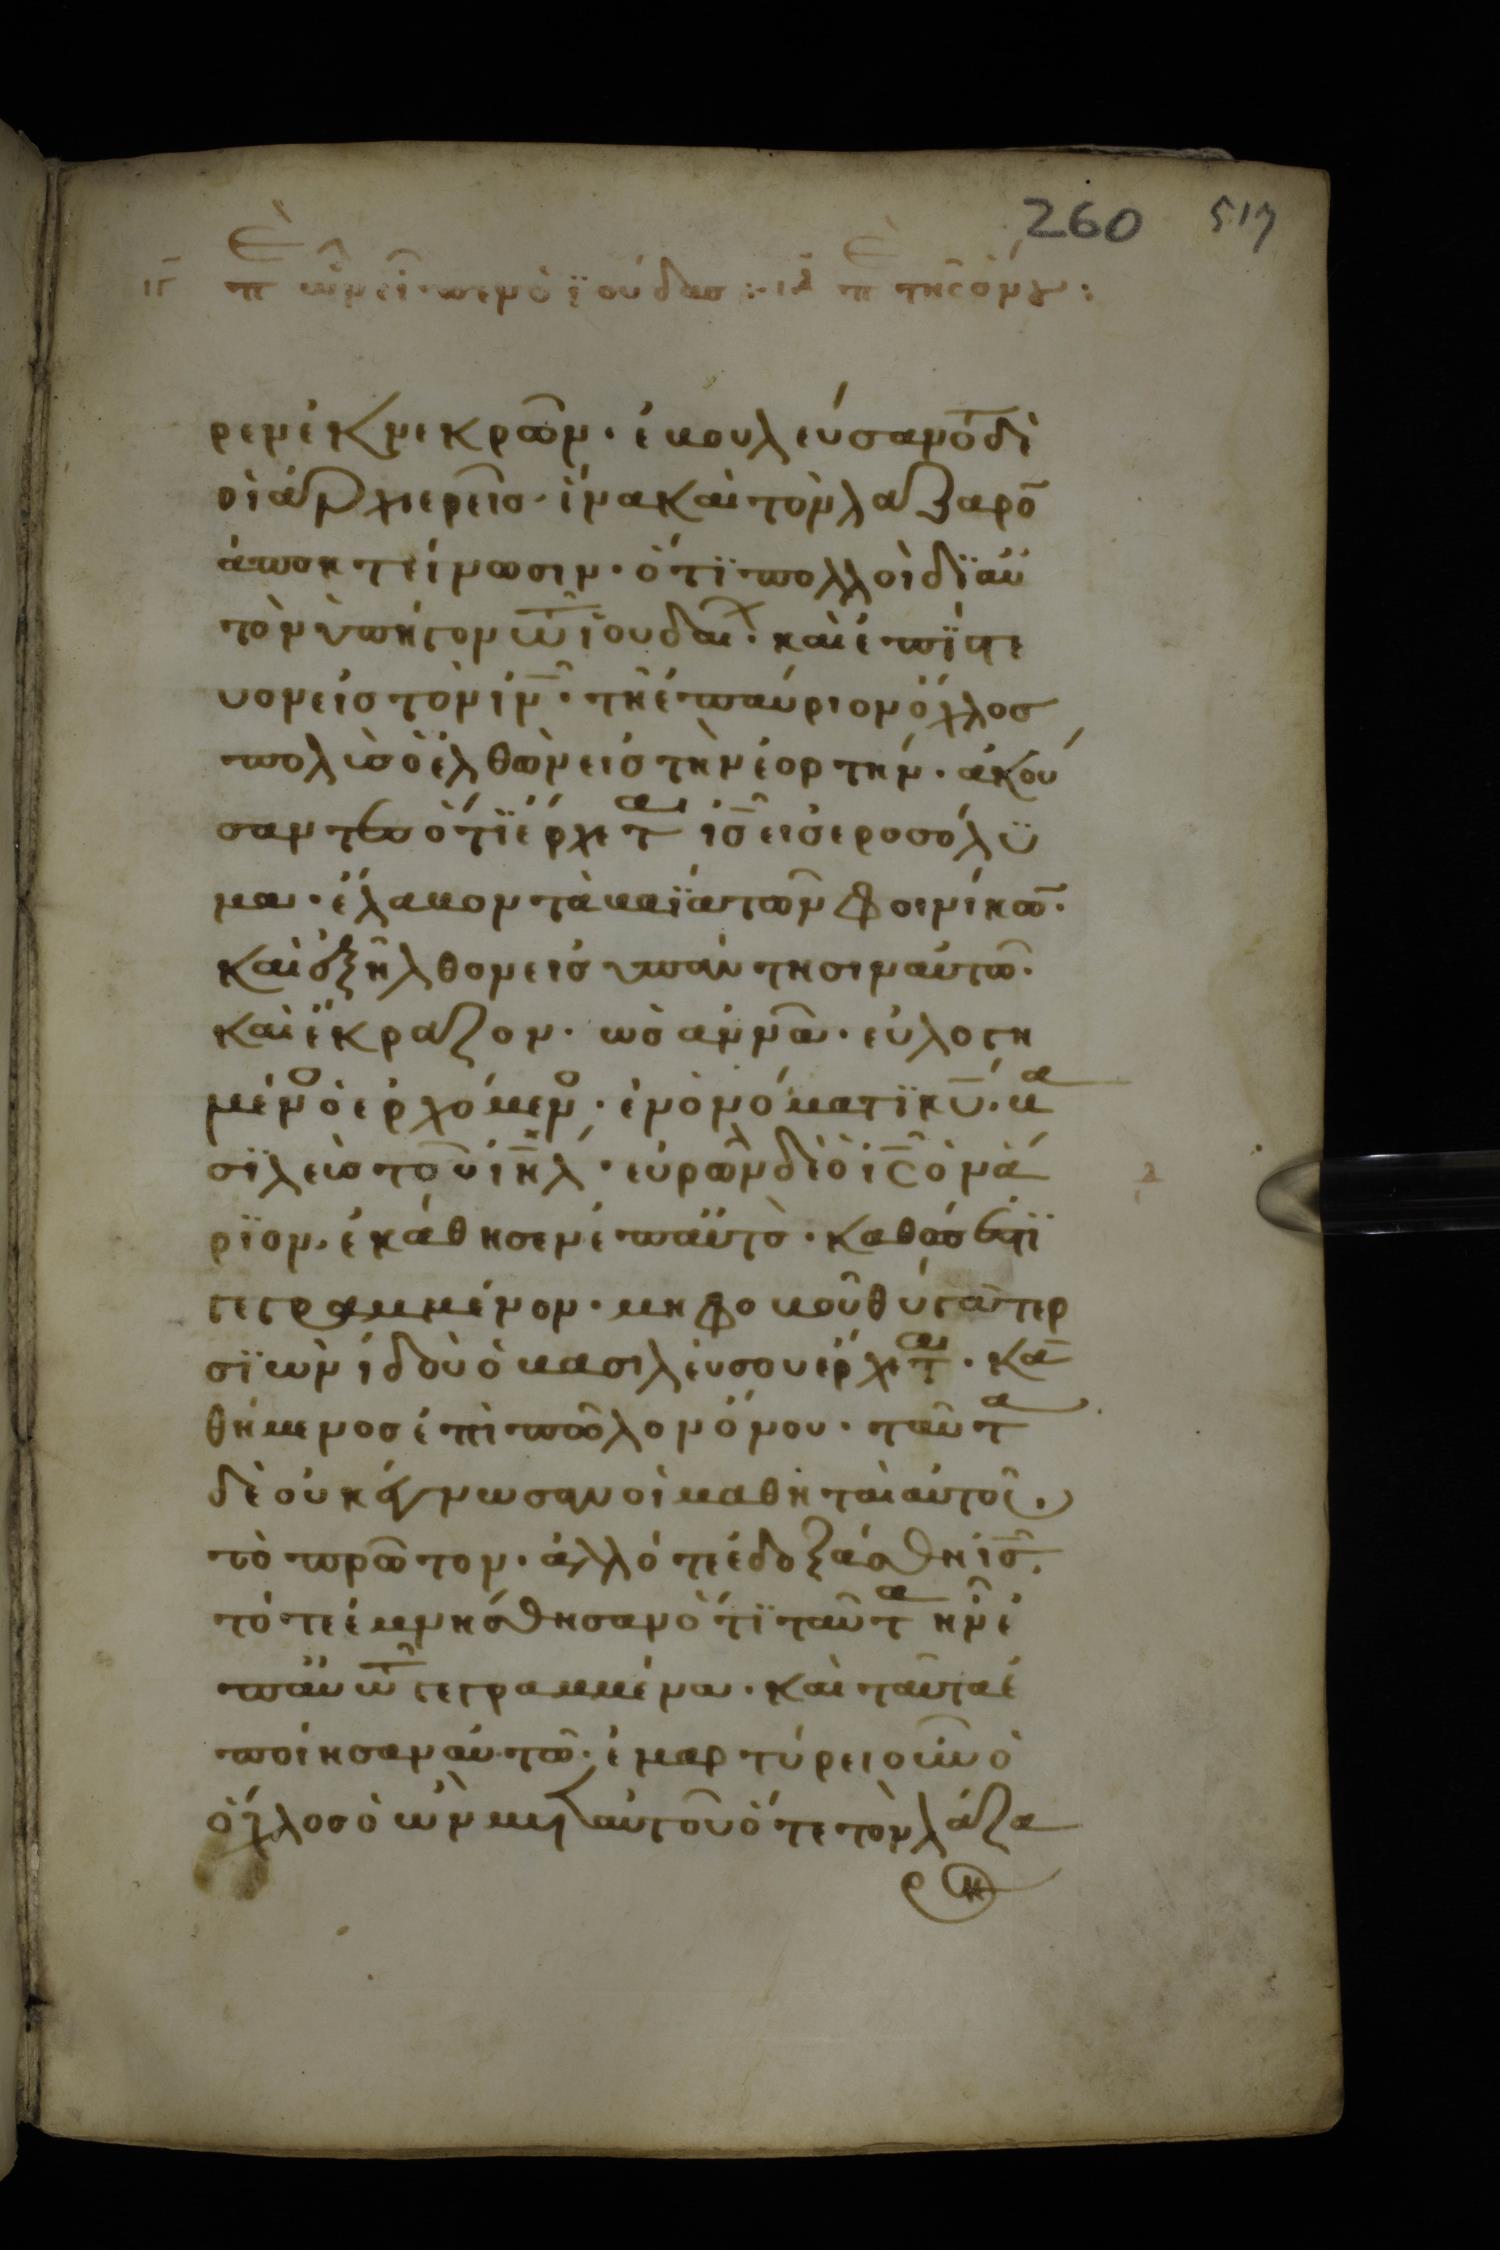 260 517
ιγ πε ὧν εἶπεν ὁ ϊούδας :· ιδ πε τῆς ὄνου :
ρεν ἐκ νεκρῶν · ἐβουλεύσαντο δὲ
οἱ ἀρχιερεῖς · ἵνα καὶ τὸν λαζαρο̄
ἀποκτείνωσιν · ὅτϊ πολλοὶ δϊ αὐ
τὸν ὑπῆγον τῶ̄ ἰουδαι · καὶ ἐπϊστε
υον εἰς τὸν ιν̄ · τῆ ἐπαύριον ὄχλος
πολὺς ὁ ἐλθὼν εἰς τὴν ἑορτήν · ἀκού
σαντες ὅτϊ ἔρχεται ις̄ εἰς ἱεροσολϋ
μα · ἔλαβον τὰ βαϊα τῶν φοινίκω̄ ·
καὶ ἐξῆλθον εἰς ὑπάντησιν αὐτῶ ·
καὶ ἔκραζον · ὡσαννᾶ · εὐλογη
μένος ὁ ἐρχόμενος · ἐν ὀνόματϊ κῡ · βα
σϊλεὺς τοῦ ιη̄λ · εὑρὼν δὲ ὁ ις̄ ὀνά
ρϊον · ἐκάθησεν ἐπ αὐτὸ · καθώς ἐστϊ
γεγραμμένον · μὴ φοβοῦ θύγατερ
σϊὼν ἰδοὺ ὁ βασιλεύς σου ἔρχεται · κα
θήμενος ἐπὶ πῶλον ὄνου · ταῦτα
δὲ οὐκ ἔγνωσαν οἱ μαθηταὶ αὐτοῦ ·
τὸ πρῶτον · ἀλλ ὅτε ἐδοξάσθη ις̄ ·
τότε ἐμνήσθησαν ὅτϊ ταῦτα ἦν ἐ
π αὐτῶ̄ γεγραμμένα · καὶ ταῦτα ἐ
ποίησαν αὐτῶ · ἐμαρτύρει οὖν ὁ
ὄχλος ὁ ὢν μετ αὐτοῦ ὅτε τὸν λάζα